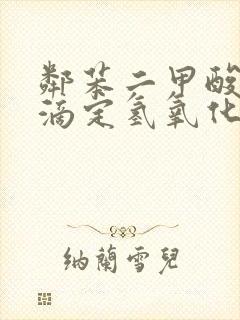 鄰苯二甲酸
滴定氢氧化
纳蘭雪兒